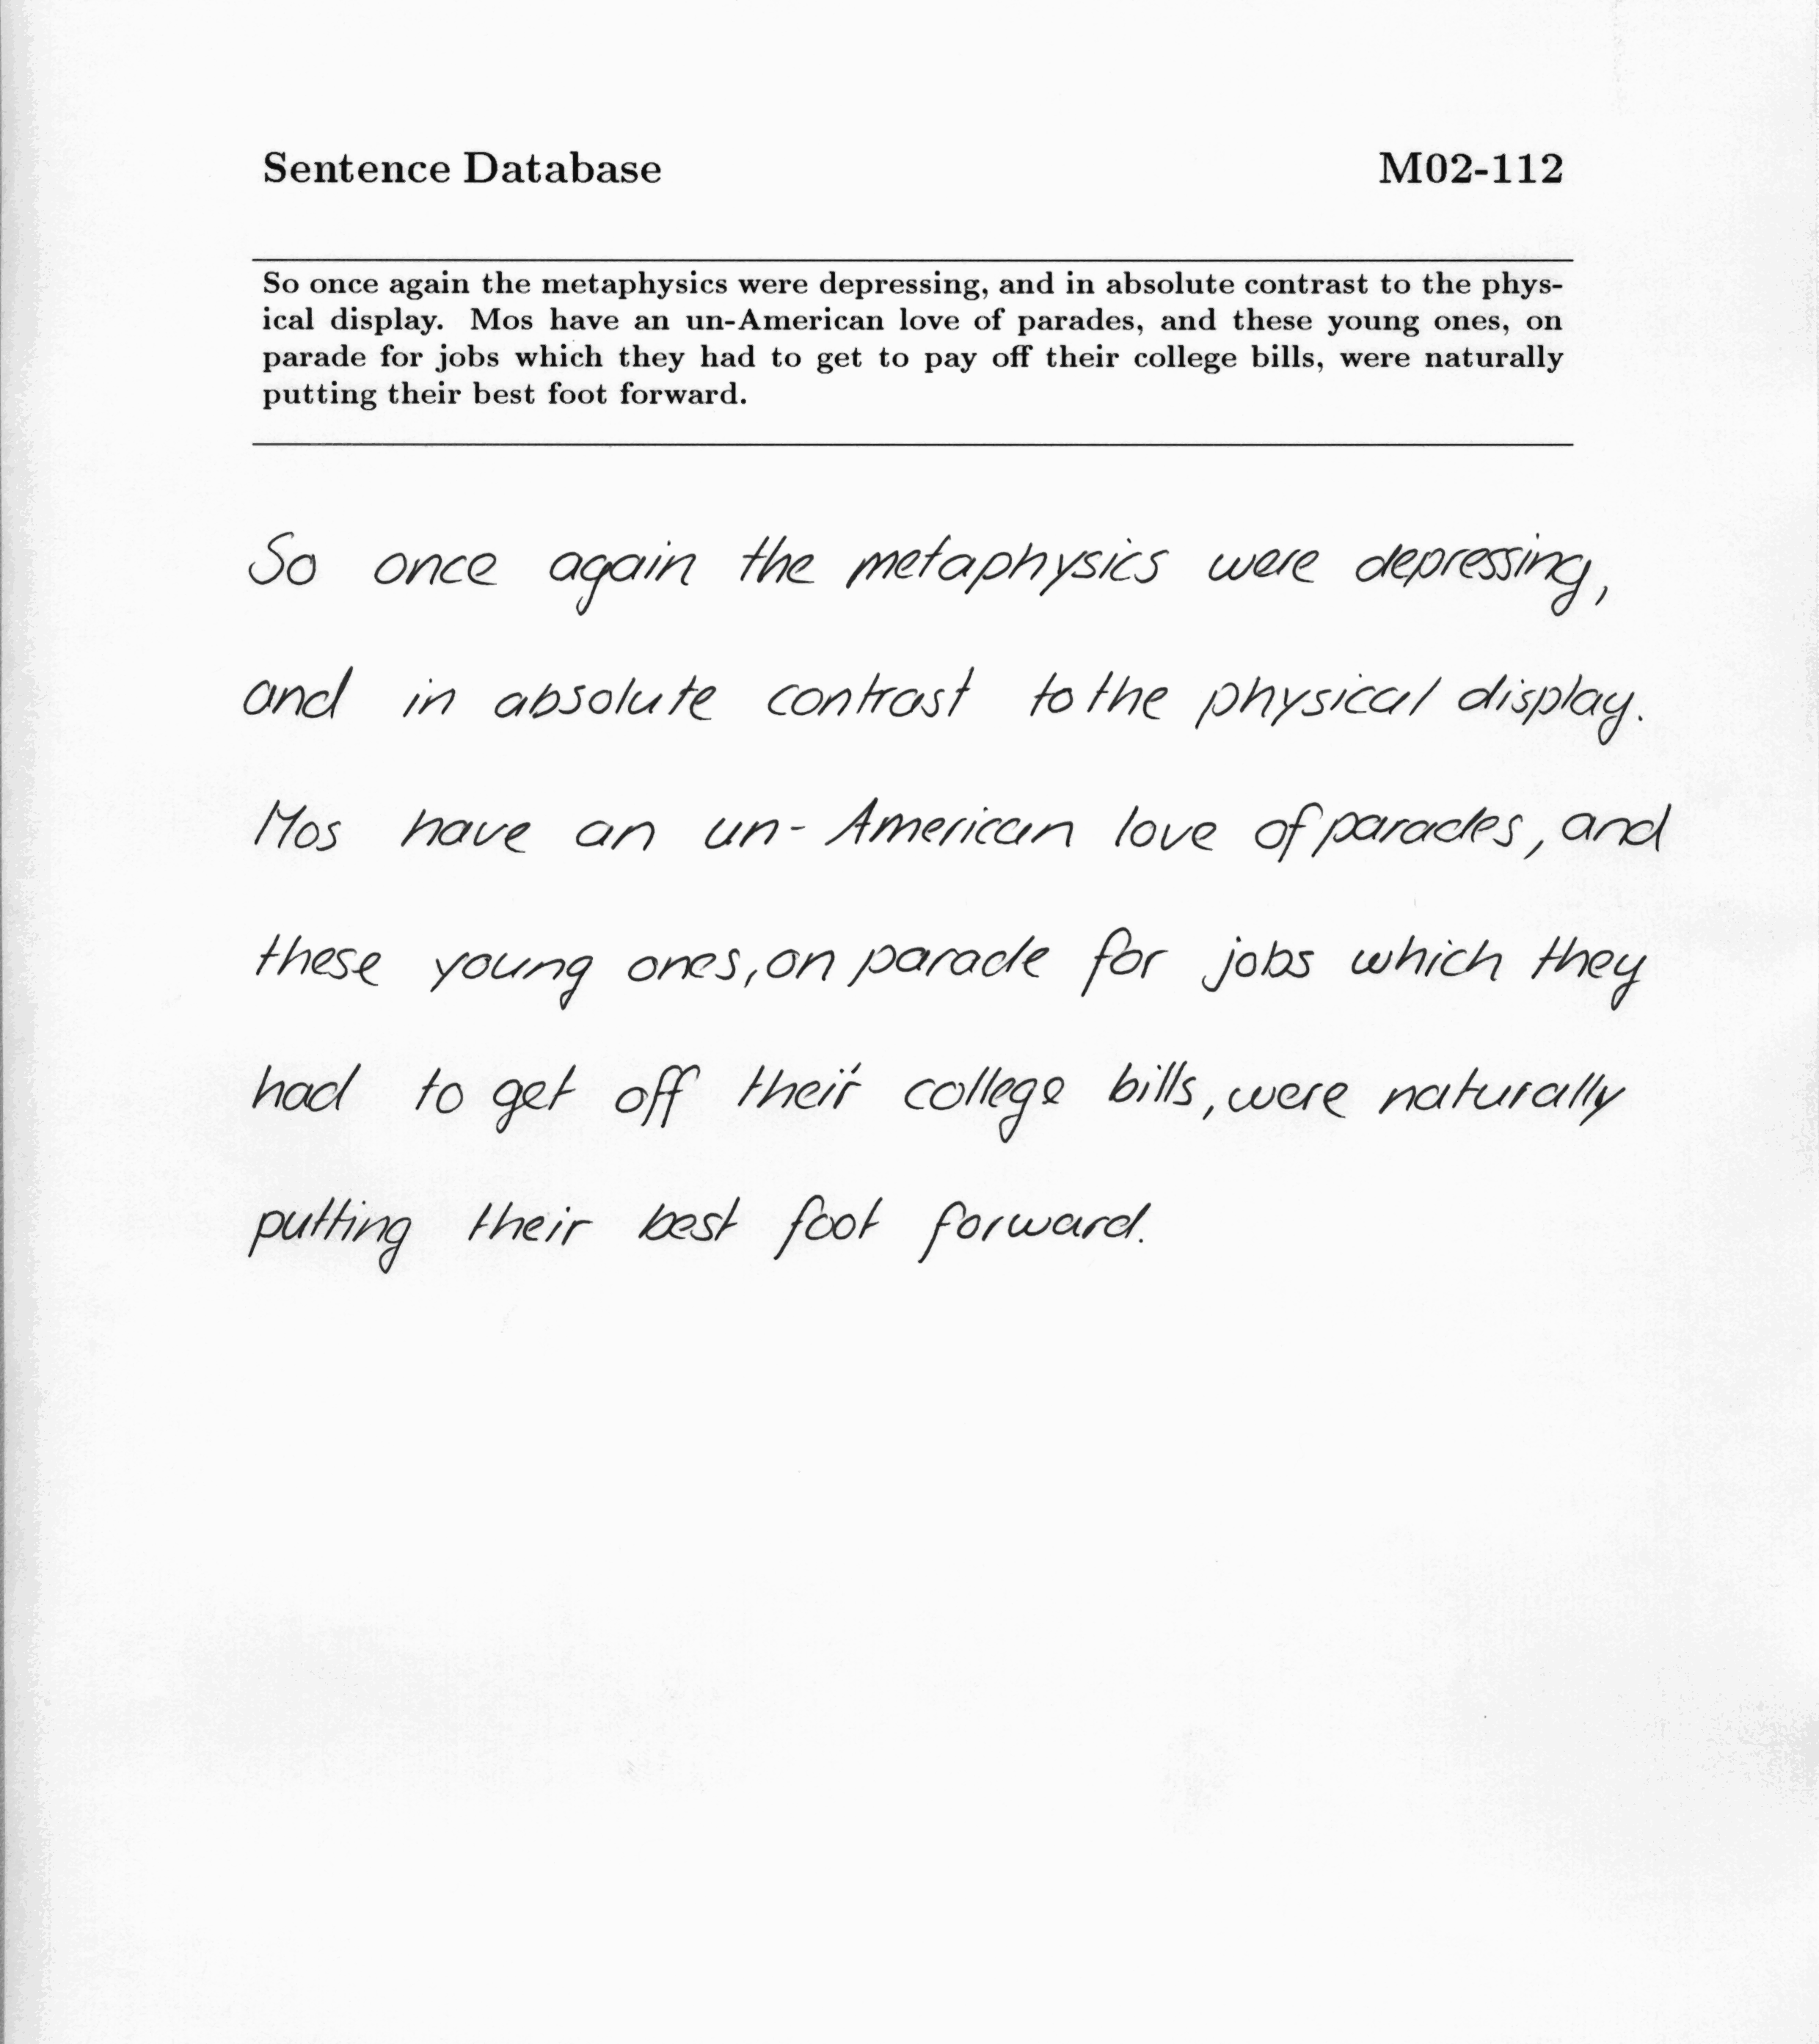 Sentence Database M02-112
So once again the metaphysics were depressing, and in absolute contrast to the phys-
ical display. Mos have an un-American love of parades, and these young ones, on
parade for jobs which they had to get to pay off their college bills, were naturally
putting their best foot forward.
So once again the metaphysics were depressing,
and in absolute contrast to the physical display.
Mos have an un- American love of parades, and
these young ones, on parade for jobs which they
had to get off their college bills, were naturally
putting their best foot forward.